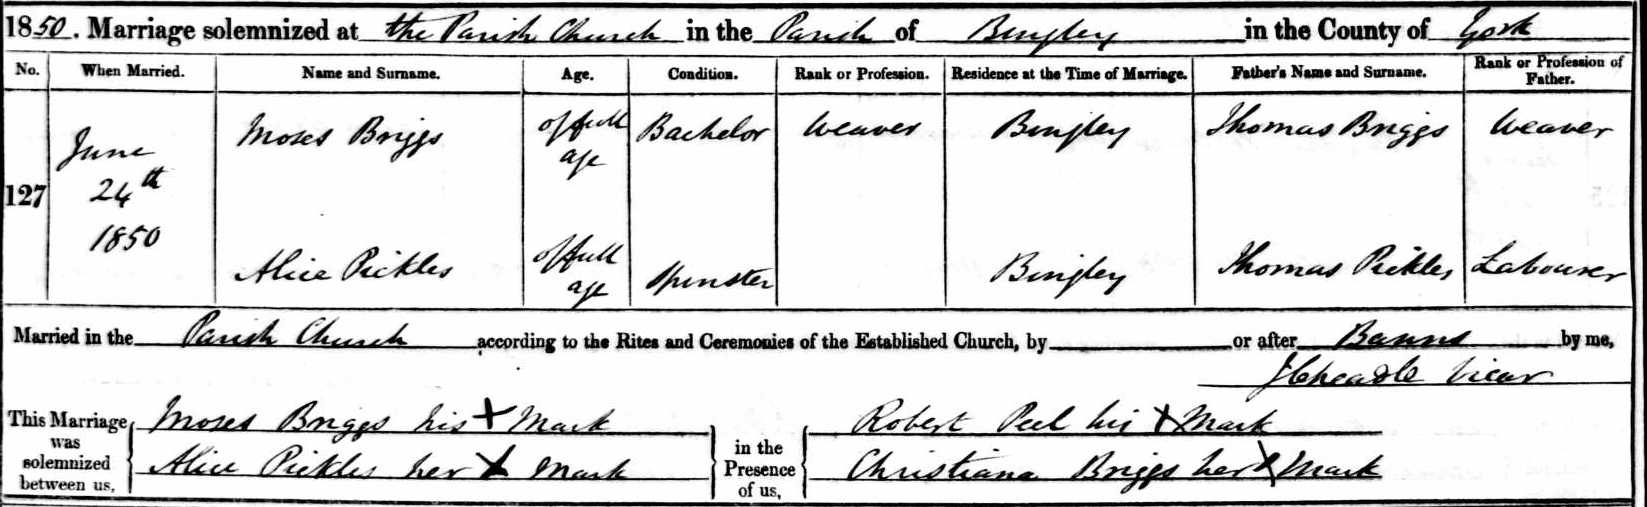 1850. Marriage solemnized at the Parish Church in the Parish of Bingley in the County of York
No. When Married. Name and Surname. Age. Condition. Rank or Profession. Residence at the Time of Marriage. Father's Name and Surname. Rank or Profession of Father.
127 June 24th 1850 Moses Briggs of full age Bachelor Weaver Bingley Thomas Briggs Weaver
Alice Pickles of full age Spinster Bingley Thomas Pickles Labourer
Married in the Parish Church according to the Rites and Ceremonies of the Established Church, by or after Banns by me,
J Cheadle Vicar
This Marriage was solemnized between us, Moses Briggs his X Mark in the Presence of us, Robert Peel his X Mark
Alice Pickles her X Mark Christiana Briggs her X Mark